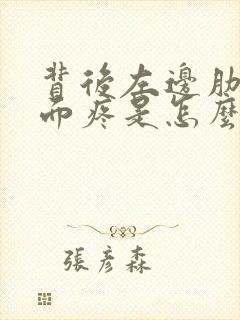 背後左邊肋
而疼是怎麼
張彥森